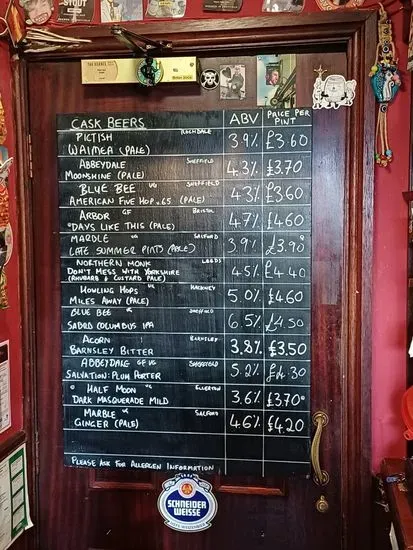 STOUT
CASK BEERS ABV PRICE PER PINT
PICTISH ROCHDALE
WAIMEA (PALE) 3.9% £3.60
ABBEYDALE SHEFFIELD
MOONSHINE (PALE) 4.3% £3.70
BLUE BEE VG SHEFFIELD
AMERICAN FIVE HOP v.65 (PALE) 4.3% £3.60
ARBOR GF BRISTOL
DAYS LIKE THIS (PALE) 4.7% £4.60
MARBLE VG SALFORD
LATE SUMMER PINTS (PALE) 3.9% £3.90
NORTHERN MONK LEEDS
DON'T MESS WITH YORKSHIRE
(RHUBARB & CUSTARD PALE) 4.5% £4.40
HOWLING HOPS VG HACKNEY
MILES AWAY (PALE) 5.0% £4.60
BLUE BEE VG SHEFFIELD
SABRO COLUMBUS IPA 6.5% £4.50
ACORN BARNSLEY
BARNSLEY BITTER 3.8% £3.50
ABBEYDALE GF VG SHEFFIELD
SALVATION: PLUM PORTER 5.2% £4.30
HALF MOON VG ELLERTON
DARK MASQUERADE MILD 3.6% £3.70
MARBLE VG SALFORD
GINGER (PALE) 4.6% £4.20
PLEASE ASK FOR ALLERGEN INFORMATION
SCHNEIDER
WEISSE